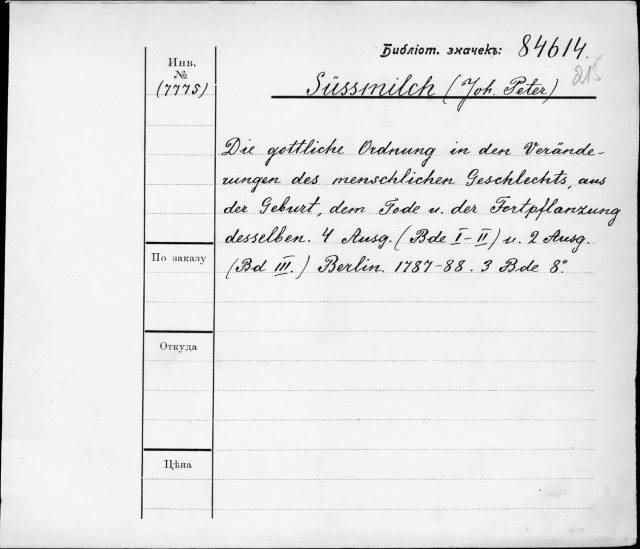 Библіот. значекъ: 84614.
215
Инв.
№
(7775)
Süssmilch (Joh. Peter)
Die gottliche Ordnung in den Verände-
rungen des menschlichen Geschlechts, aus
der Geburt, dem Tode u. der Fortpflanzung
desselben. 4 Ausg. (Bde I-II) u. 2 Ausg.
(Bd III.) Berlin. 1787-88. 3 Bde 8°.
По заказу
Откуда
Цѣна